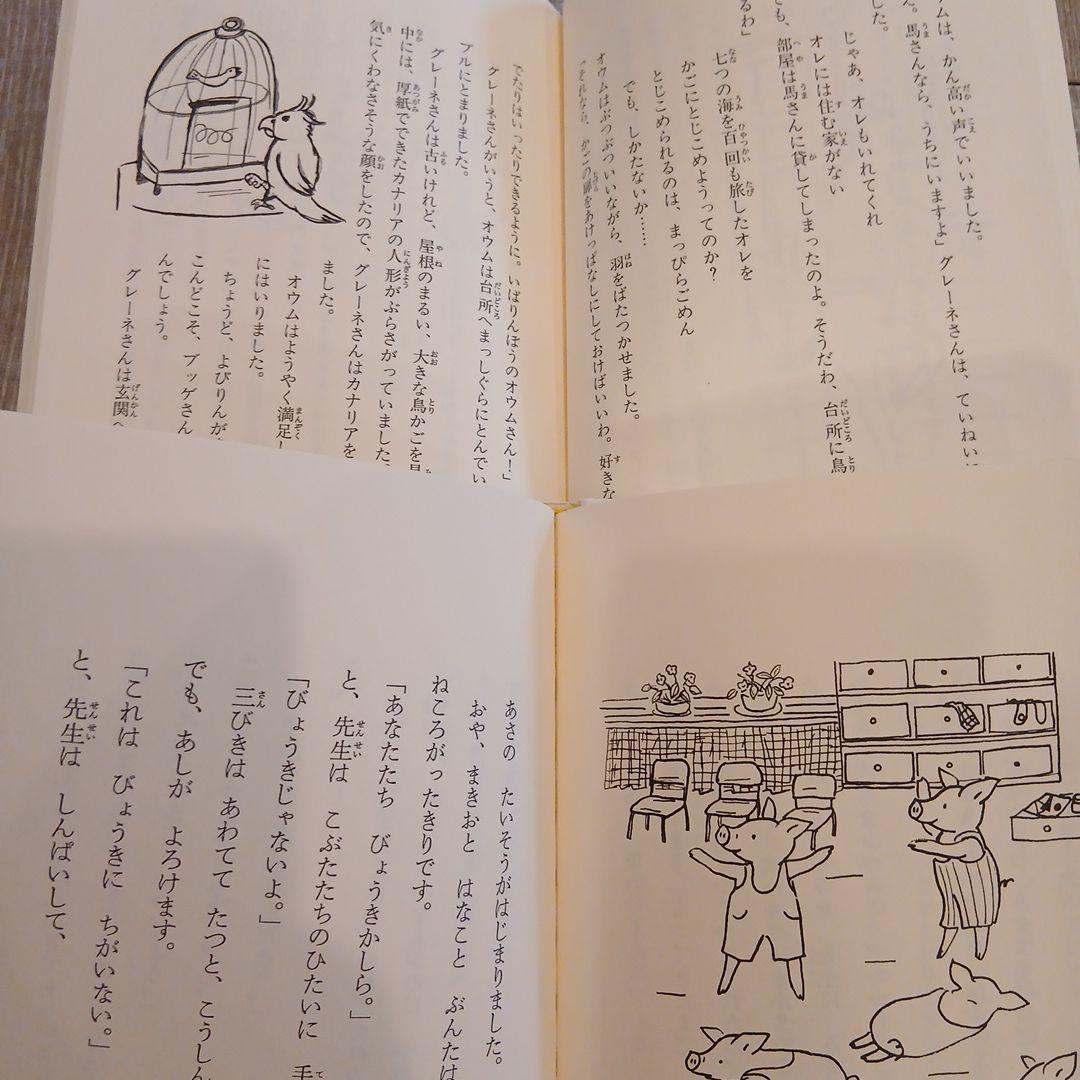 ウムは、かん高い声でいいました。
馬さんなら、うちにいますよ」グレーネさんは、ていねいに
した。
じゃあ、オレもいれてくれ
オレには住む家がない
部屋は馬さんに貸してしまったのよ。そうだわ、台所に鳥
でも、
るわ」
七つの海を百回も旅したオレを
かごにとじこめようってのか?
とじこめられるのは、まっぴらごめん
でも、しかたないか……
オウムはぶつぶついいながら、羽をばたつかせました。
かごの扉をあけっぱなしにしておけばいいわ。好きな
でたりはいったりできるように。いばりんぼうのオウムさん!」
グレーネさんがいうと、オウムは台所へまっしぐらにとんでい
ブルにとまりました。
グレーネさんは古いけれど、屋根のまるい、大きな鳥かごを
中には、厚紙でできたカナリアの人形がぶらさがっていました。
気にくわなさそうな顔をしたので、グレーネさんはカナリアを
ました。
オウムはようやく満足
にはいりました。
ちょうど、よびりんが
こんどこそ、ブッゲさん
んでしょう。
グレーネさんは玄関へ
あさの たいそうがはじまりました。
おや、まきおと はなこと ぶんたは
ねころがったきりです。
「あなたたち びょうきかしら。」
と、先生は こぶたたちのひたいに 手
「びょうきじゃないよ。」
三びきは あわてて たつと、こうしん
でも、あしが よろけます。
「これは びょうきに ちがいない。」
と、先生は しんぱいして、